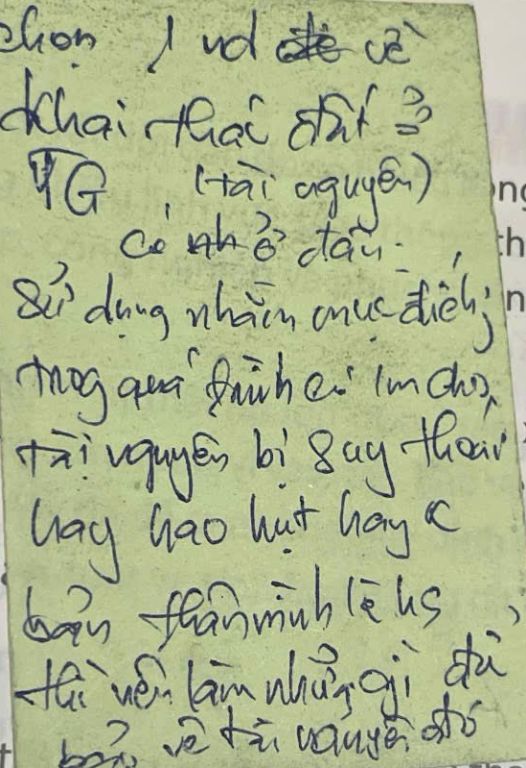 chọn 1 vd về
khai thác đất ở
TG (tài nguyên)
có ở đâu.
sử dụng nhằm mục đích;
trog quá trình có làm cho,
tài nguyên bị suy thoái
hay hao hụt hay k
bản thân mình là hs
thì nên làm những gì để
bảo vệ tài nguyên đó